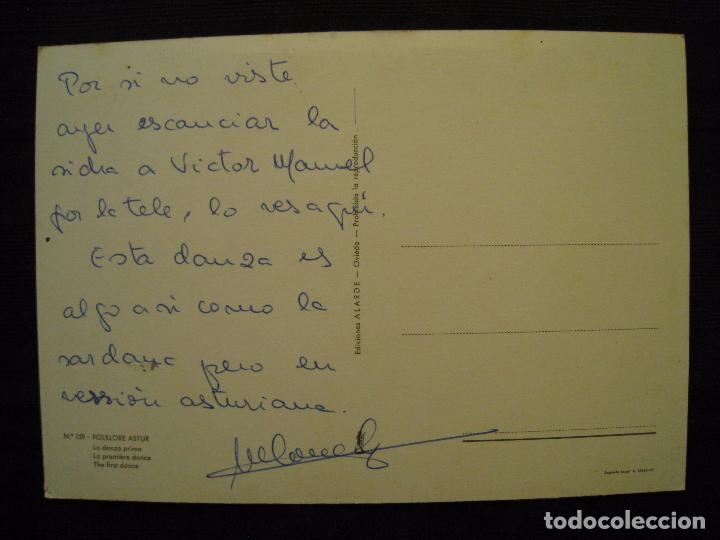 Por si no viste
ayer escanciar la
sidra a Victor Manuel
por la tele, lo ves aquí.
Esta danza es
algo asi como la
sardana pero en
versión asturiana.
Nº 159 - FOLKLORE ASTUR
La danza prima
La première dance
The first dance
Ediciones ALARDE — Oviedo — Prohibida la reproducción
todocoleccion.net